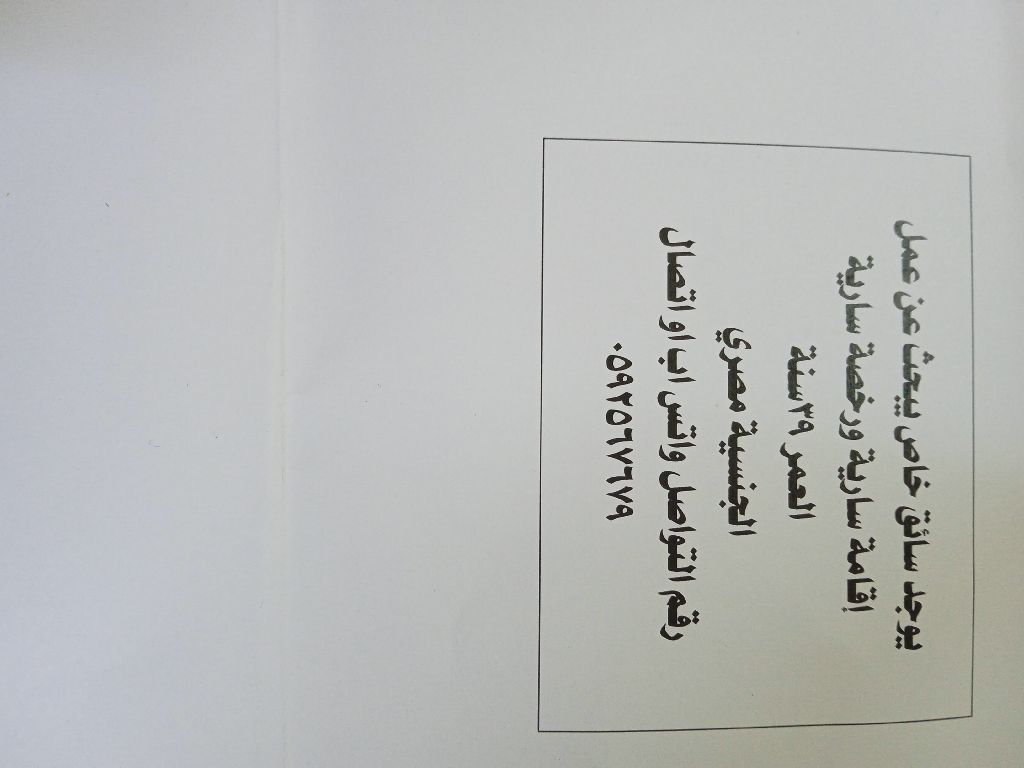 يوجد سائق خاص يبحث عن عمل
اقامة سارية ورخصة سارية
العمر ٣٩سنة
الجنسية مصري
رقم التواصل واتس اب او اتصال
٠٥٩٢٥٦٧٦٧٩